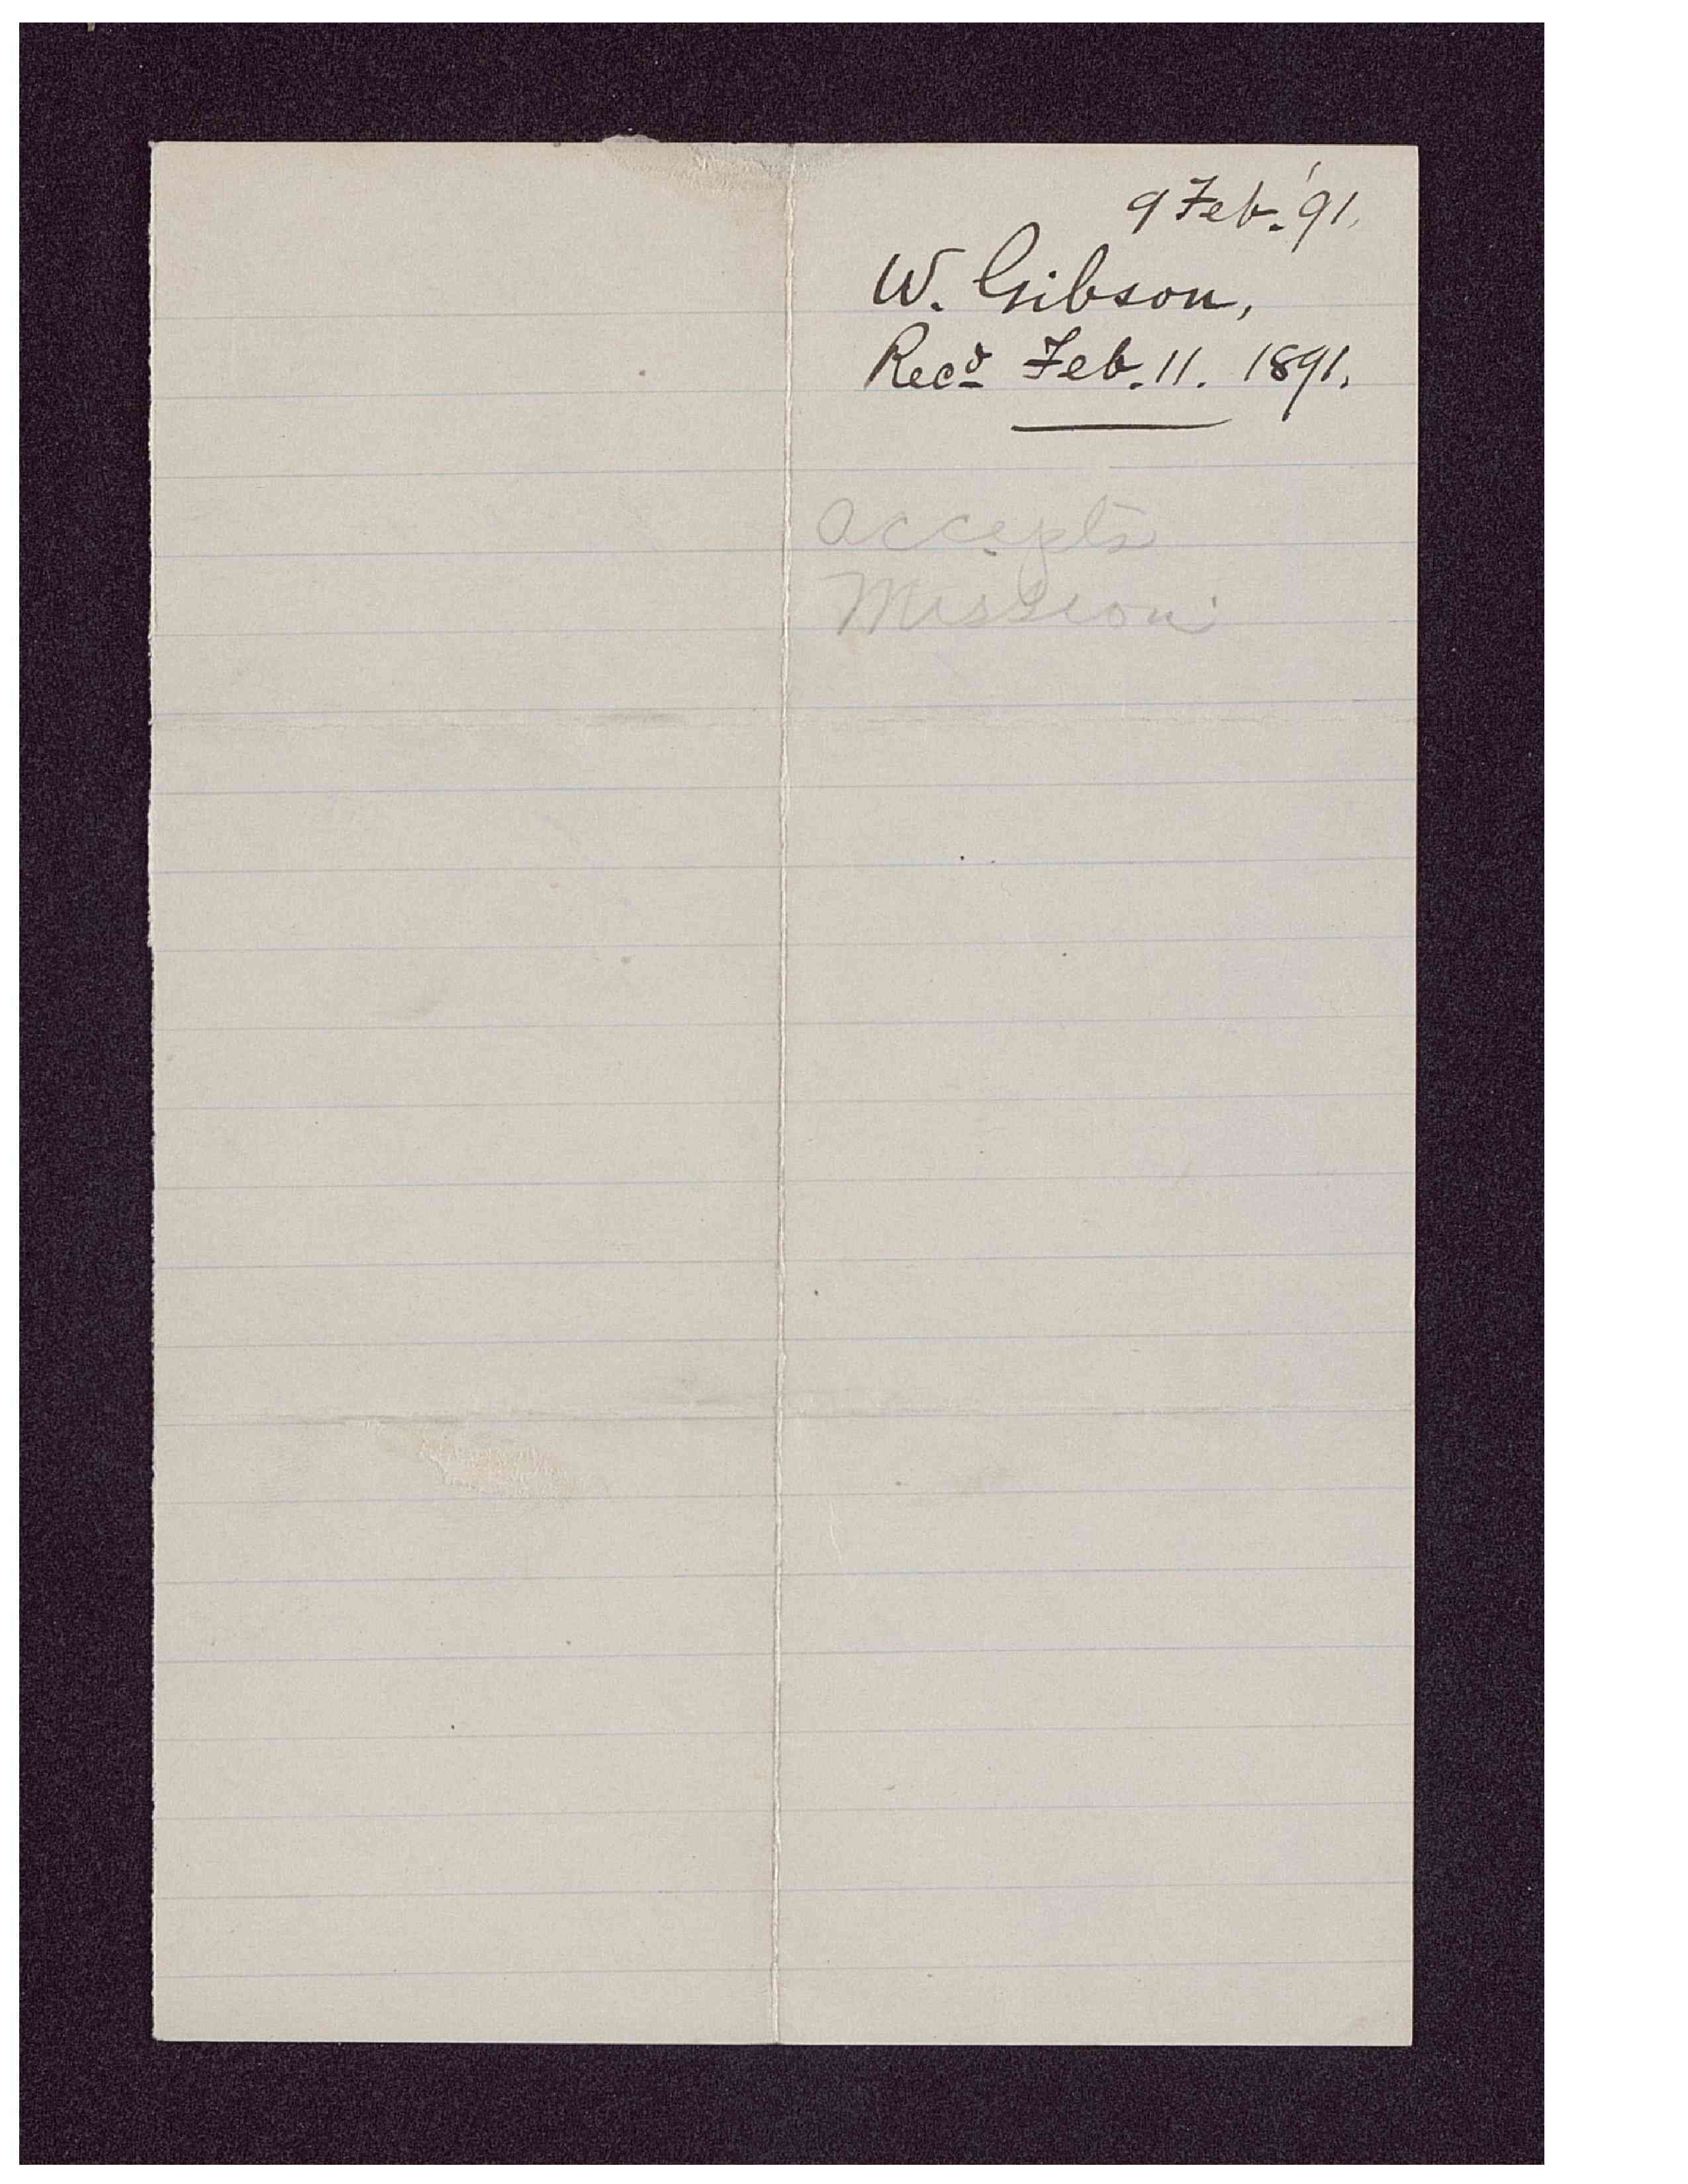 9 Feb. '91.
W. Gibson,
Recd Feb. 11. 1891.
accepts
Mission